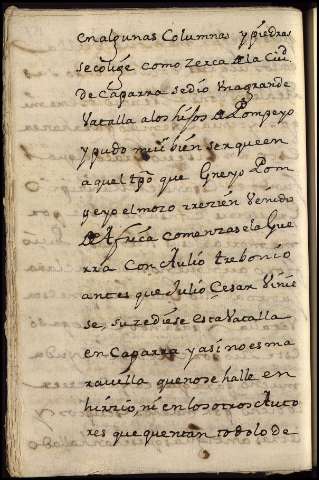 en algunas Columnas y piedras
se colige como zerca de la Ciud
de Caparra se dio Una grande
Vatalla a los hijos de Pompeyo
y pudo mui bien ser que en
aquel tpo que Gneyo Pom
peyo el mozo rrezien Venido
de Africa comenzase la Gue
rra Con Aulio trebonio
antes que Julio Cesar Vinie
se, suzediese esta Vatalla
en Caparra y asi no es ma
ravilla que no se halle en
hirzio, ni en los otros Auto
res que quentan todo lo de